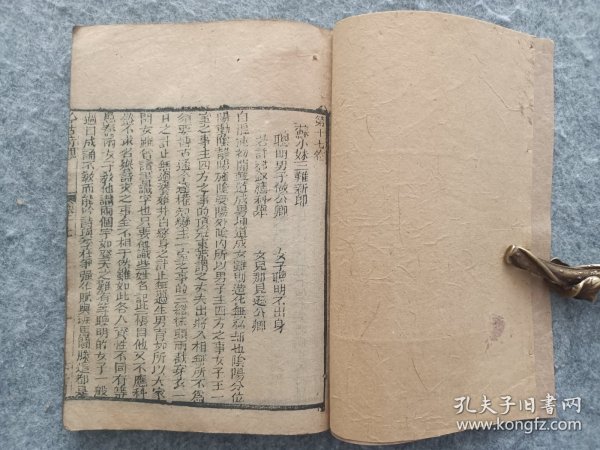 第十七卷
蘇小妹三難新郎
聰明男子做公卿　女子聰明不出身
若許裙釵應科舉　女兒那見遜公卿
自混沌初闢乾道成男坤道成女雖則造化無私却也陰陽分位
陽動陰靜陽施陰受陽外陰內所以男子主四方之事女子主一
室之事主四方之事的頂冠束帶謂之丈夫出將入相無所不為
須要博古通今達權知變主一室之事的三綹梳頭兩截穿衣一
日之計止無過饔飧井臼終身之計止無過生男育女所以大家
閨女雖曾讀書識字也只要他識些姓名記些帳目他又不應科
舉不求名譽詩文之事全不相干然雖如此各人資性不同有等
愚蠢的女子教他識兩個字如登天之難有等聰明的女子一般
過目成誦不教而能吟詩與李杜爭強作賦與班馬鬬勝這都是
今古奇觀
孔夫子旧书网
www.kongfz.com